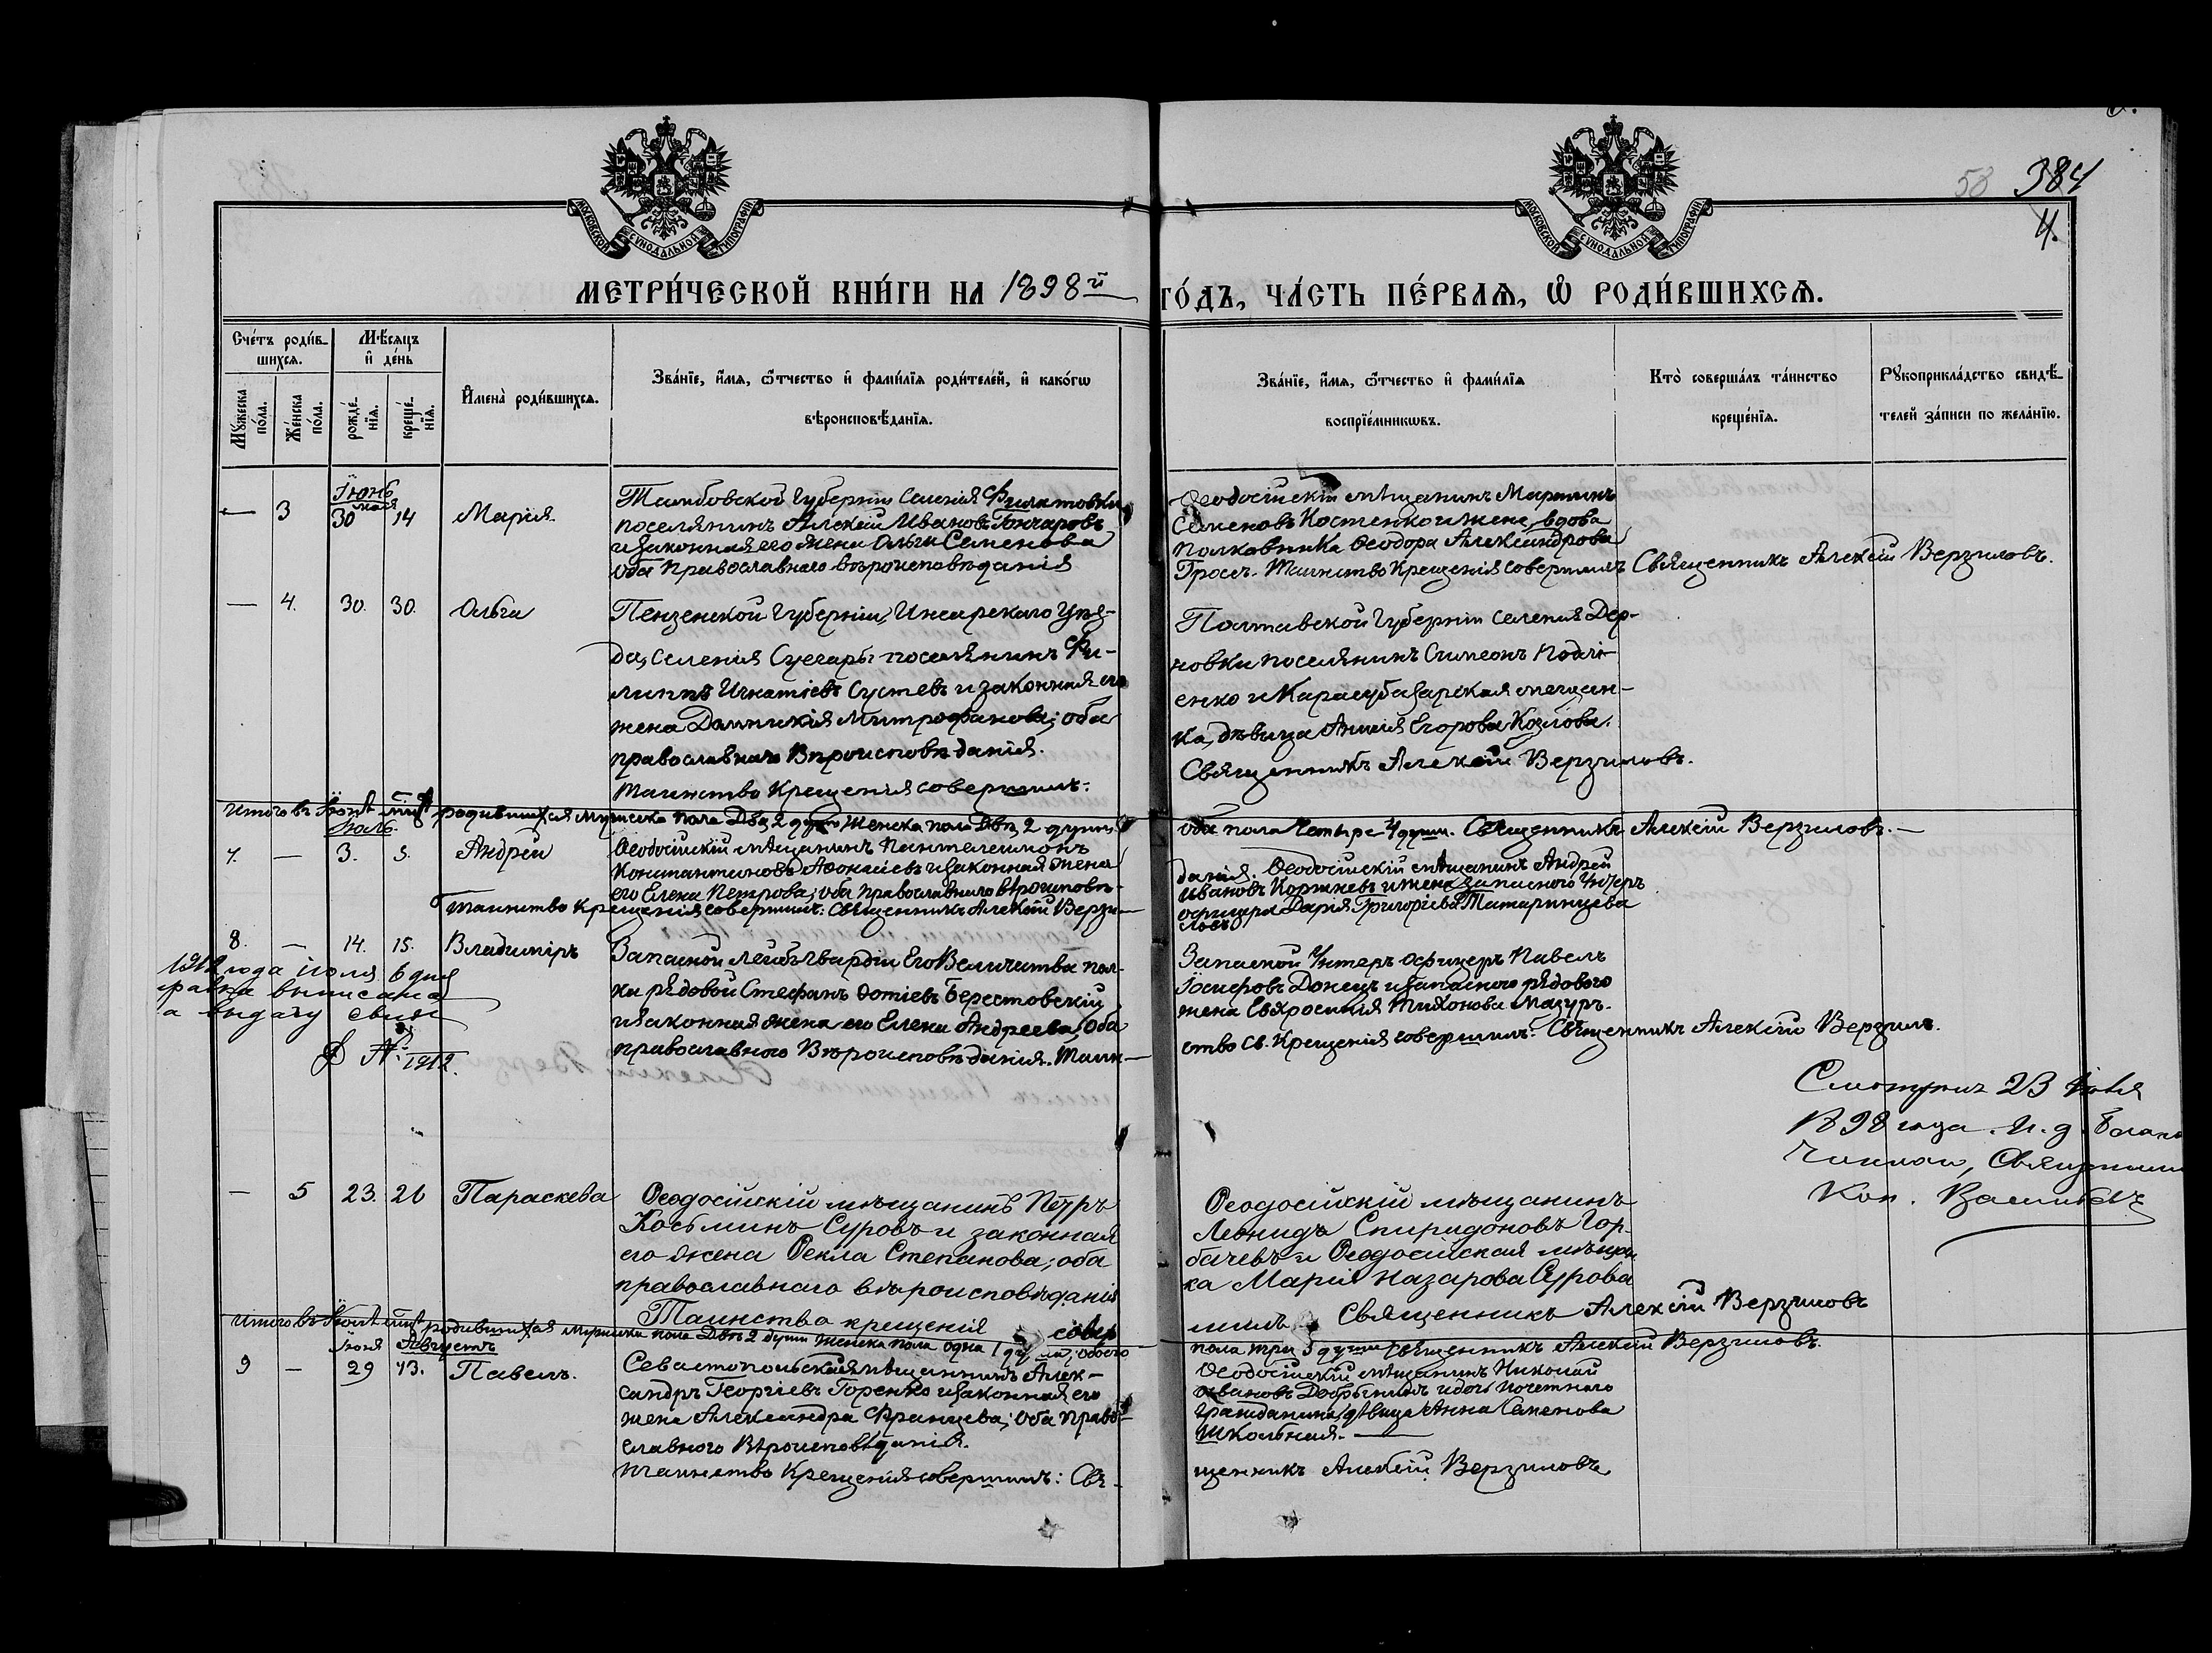 58 384
4.
МОСКОВСКОЙ СѴНОДАЛЬНОЙ ТИПОГРАФІИ
МОСКОВСКОЙ СѴНОДАЛЬНОЙ ТИПОГРАФІИ
МЕТРИ́ЧЕСКОЙ КНИ́ГИ НА 1898й ГО́ДЪ, ЧА́СТЬ ПЕ́РВАѦ, Ѡ҆ РОДИ́ВШИХСѦ.
Сче́тъ роди́в-
шихсѧ.
Мꙋ́жеска по́ла.
Же́нска по́ла.
Мѣ́сяцъ
и҆ де́нь
рожде́-
нїѧ.
креще́-
нїѧ.
И҆мена̀ роди́вшихсѧ.
Зва́нїе, и҆́мѧ, ѻ҆́тчество и҆ фами́лїѧ роди́телей, и҆ како́гѡ
вѣроисповѣ́данїѧ.
Зва́нїе, и҆́мѧ, ѻ҆́тчество и҆ фами́лїѧ
воспрїе́мникѡвъ.
Кто̀ соверша́лъ та́инство
креще́нїѧ.
Рꙋкоприкла́дство свидѣ́-
телей за́писи по жела́нїю.
Іюнь
мая
— 3 30 14 Марія.
Тамбовской Губерніи селенія Филатовки
поселянинъ Алексѣй Ивановъ Гончаровъ
и законная его жена Ольга Семенова
оба Православнаго вѣроисповѣданія
Ѳеодосійскій мѣщанинъ Мартинъ
Семеновъ Костенко и жена, вдова
полковника Ѳеодора Александрова
Гросъ. Таинство Крещенія совершилъ Священникъ Алексій Верзиловъ.
— 4. 30. 30. Ольга
Пензенской Губерніи, Инсарскаго Уѣз-
да, селенія поселянинъ Фи-
липпъ Игнатіевъ Сустевъ и законная его
жена Домникія Митрофанова; оба
православнаго Вѣроисповѣданія.
Таинство Крещенія совершилъ:
Полтавской Губерніи селенія Дер-
новки поселянинъ Симеонъ
енко и Карасубазарская мещан-
ка, дѣвица Егорова Козлова.
Священникъ Алексій Верзиловъ.
Итого въ Іюнѣ мцѣ родившихся мужеска пола Два, 2 души Женска пола Двѣ 2 души
обоего пола Четыре 4 души. Священникъ Алексій Верзиловъ. —
Іюль
7. — 3. 5. Андрей
Ѳеодосійскій мѣщанинъ Пантелеимонъ
Константиновъ Аѳонасіевъ и законная жена
его Елена Петрова; оба православнаго вѣроисповѣ-
Таинство Крещенія совершилъ: Священникъ Алексій Верзи-
данія. Ѳеодосійскій мѣщанинъ Андрей
Ивановъ Коржневъ и жена запаснаго Унтеръ
офицера Дарія Григоріева Татаринцева
ловъ
8. — 14. 15. Владиміръ
Запасной Лейбъ Гвардіи Его Величества пол-
ка рядовой Стефанъ Фотіевъ Берестовскій
и законная жена его Елена Андреева, оба
православнаго Вѣроисповѣданія. Таин-
Запасной Унтеръ офицеръ Павелъ
Іосифовъ Донецъ и запаснаго рядового
жена Евфросинія Тихонова Мазуръ.
ство Св. Крещенія совершилъ: Священникъ Алексій Верзил.
1912 года іюля 6 дня
выписана
выдачу
№ 1912.
23 Іюля
1898 года. И. д. Благо
чиннаго, Священникъ
— 5 23. 26 Параскева
Ѳеодосійскій мѣщанинъ Петръ
Косьминъ Суровъ и законная
его жена Ѳекла Степанова; оба
православнаго вѣроисповѣданія
Таинства крещенія совер
Ѳеодосійскій мѣщанинъ
Леонидъ Спиридоновъ Гор-
бачевъ и Ѳеодосійская мѣщан
ка Марія Назарова Сурова
шилъ Священникъ Алексій Верзиловъ
Итого въ Іюлѣ мцѣ родившихся мужеска пола Двѣ 2 души женска пола одна 1 душа, обоего
пола три 3 души Священникъ Алексій Верзиловъ.
Іюля Августъ
9 — 29 13. Павелъ.
Севастопольскій мѣщанинъ Алек-
сандръ Георгіевъ Горенко и законная его
жена Александра Францева; оба право-
славного Вѣроисповѣданія.
Таинство Крещенія совершилъ: Свя-
Ѳеодосійскій мѣщанинъ Николай
Ивановъ Добрынинъ и дочь почетнаго
гражданина, дѣвица Анна Семенова
Школьная. —
щенникъ Алексій Верзиловъ